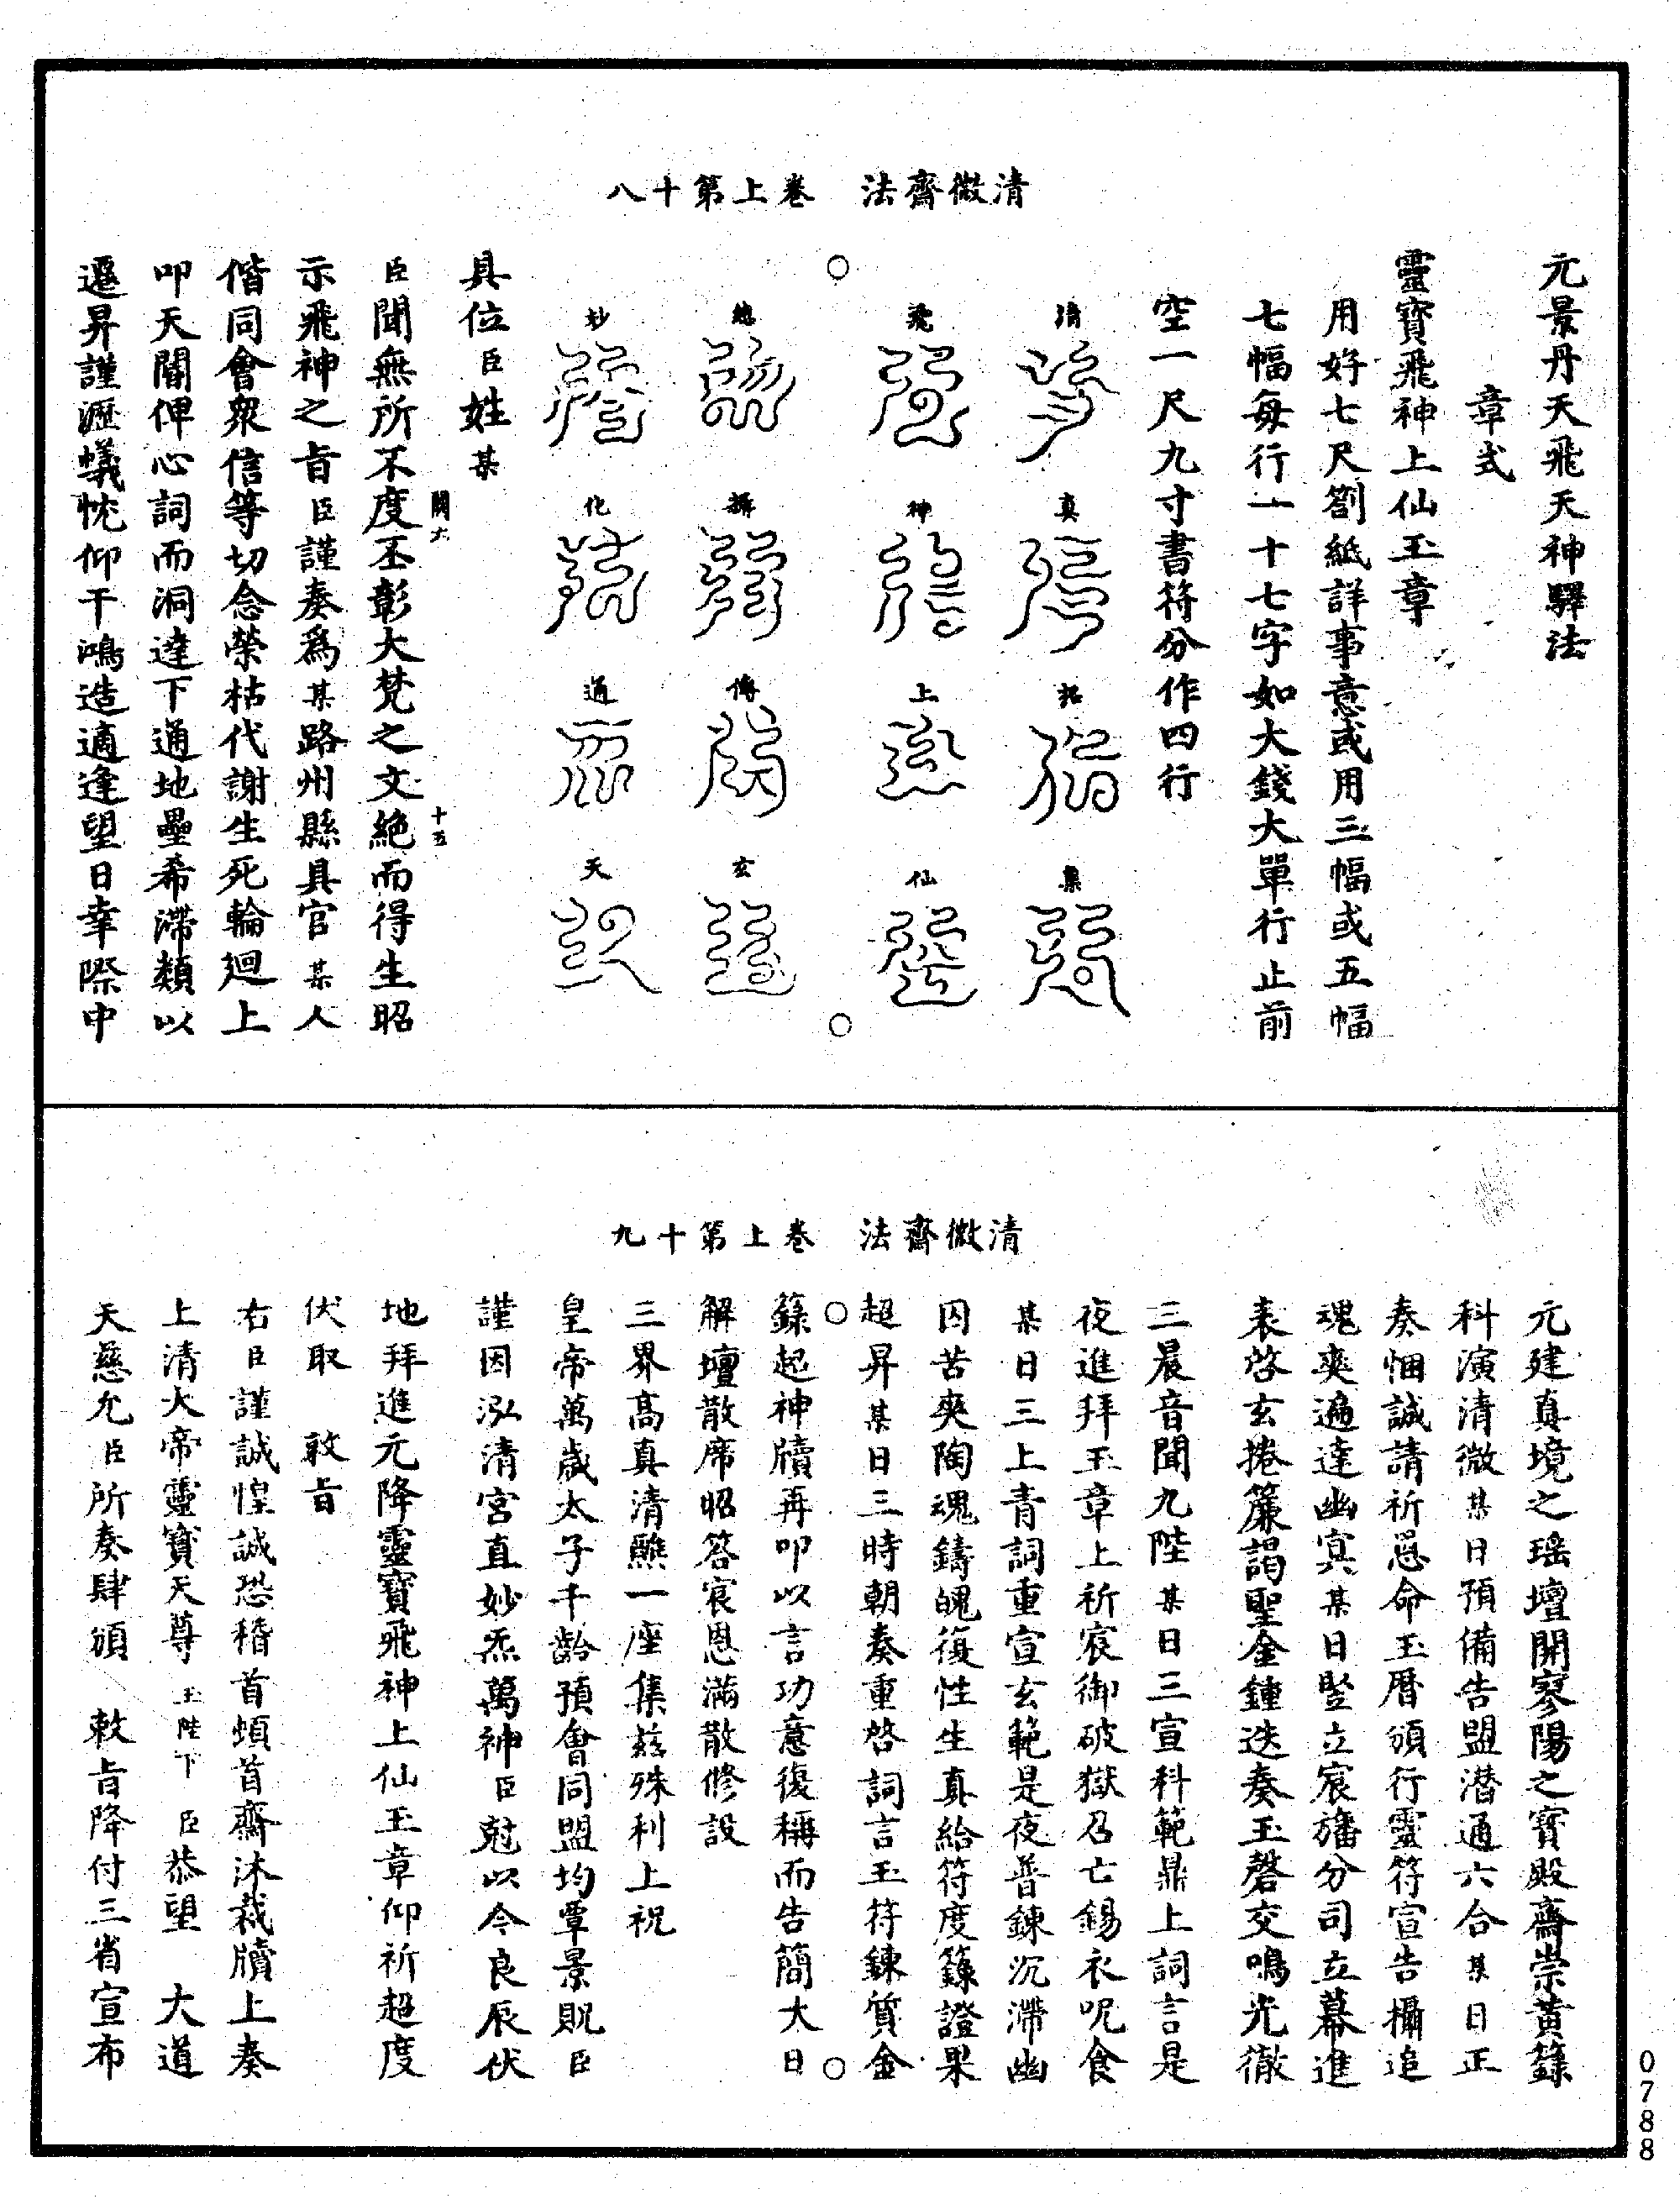 清微齋法　卷上第十八
元景丹天飛天神驛法
章式
靈寶飛神上仙玉章
用好七尺劄紙詳事意或用三幅或五幅
七幅每行一十七字如大錢大單行止前
空一尺九寸書符分作四行
清　真　拓　集
飛　神　上　仙
總　攝　傳　玄
妙　化　通　天
具位臣姓某
臣聞無所不度丕彰大梵之文絶而得生昭
示飛神之旨臣謹奏爲某路州縣具官某人
偕同會衆信等切念榮枯代謝生死輪廻上
叩天閽俾心詞而洞達下通地壘希滯類以
遷昇謹瀝蟻忱仰干鴻造適逢望日幸際中
清微齋法　卷上第十九
元建真境之瑶壇開寥陽之寶殿齋崇黃籙
科演清微某日預備告盟潜通六合某日正
奏悃誠請祈恩命玉曆頒行靈符宣告攝追
魂爽遍達幽冥某日竪立宸旛分司立幕進
表啓玄捲簾謁聖金鍾迭奏玉磬交鳴光徹
三晨音聞九陛某日三宣科範鼎上詞言是
夜進拜玉章上祈宸御破獄召亡錫衣呪食
某日三上青詞重宣玄範是夜普鍊沉滯幽
囚苦爽陶魂鑄魄復性生真給符度籙證果
超昇某日三時朝奏重啓詞言玉符鍊質金
籙起神牘再叩以言功意復稱而告簡大日
解壇散席昭答宸恩滿散修設
三界高真清醮一座集兹殊利上祝
皇帝萬歲太子千齡預會同盟均覃景貺臣
謹因泓清宫直妙炁萬神臣尅以今良辰伏
地拜進元降靈寶飛神上仙玉章仰祈超度
伏取　敕旨
右臣謹誠惶誠恐稽首頓首齋沐裁牘上奏
上清大帝靈寶天尊玉陛下　臣恭望　大道
天慈允臣所奏肆頒　敕旨降付三省宣布
0788